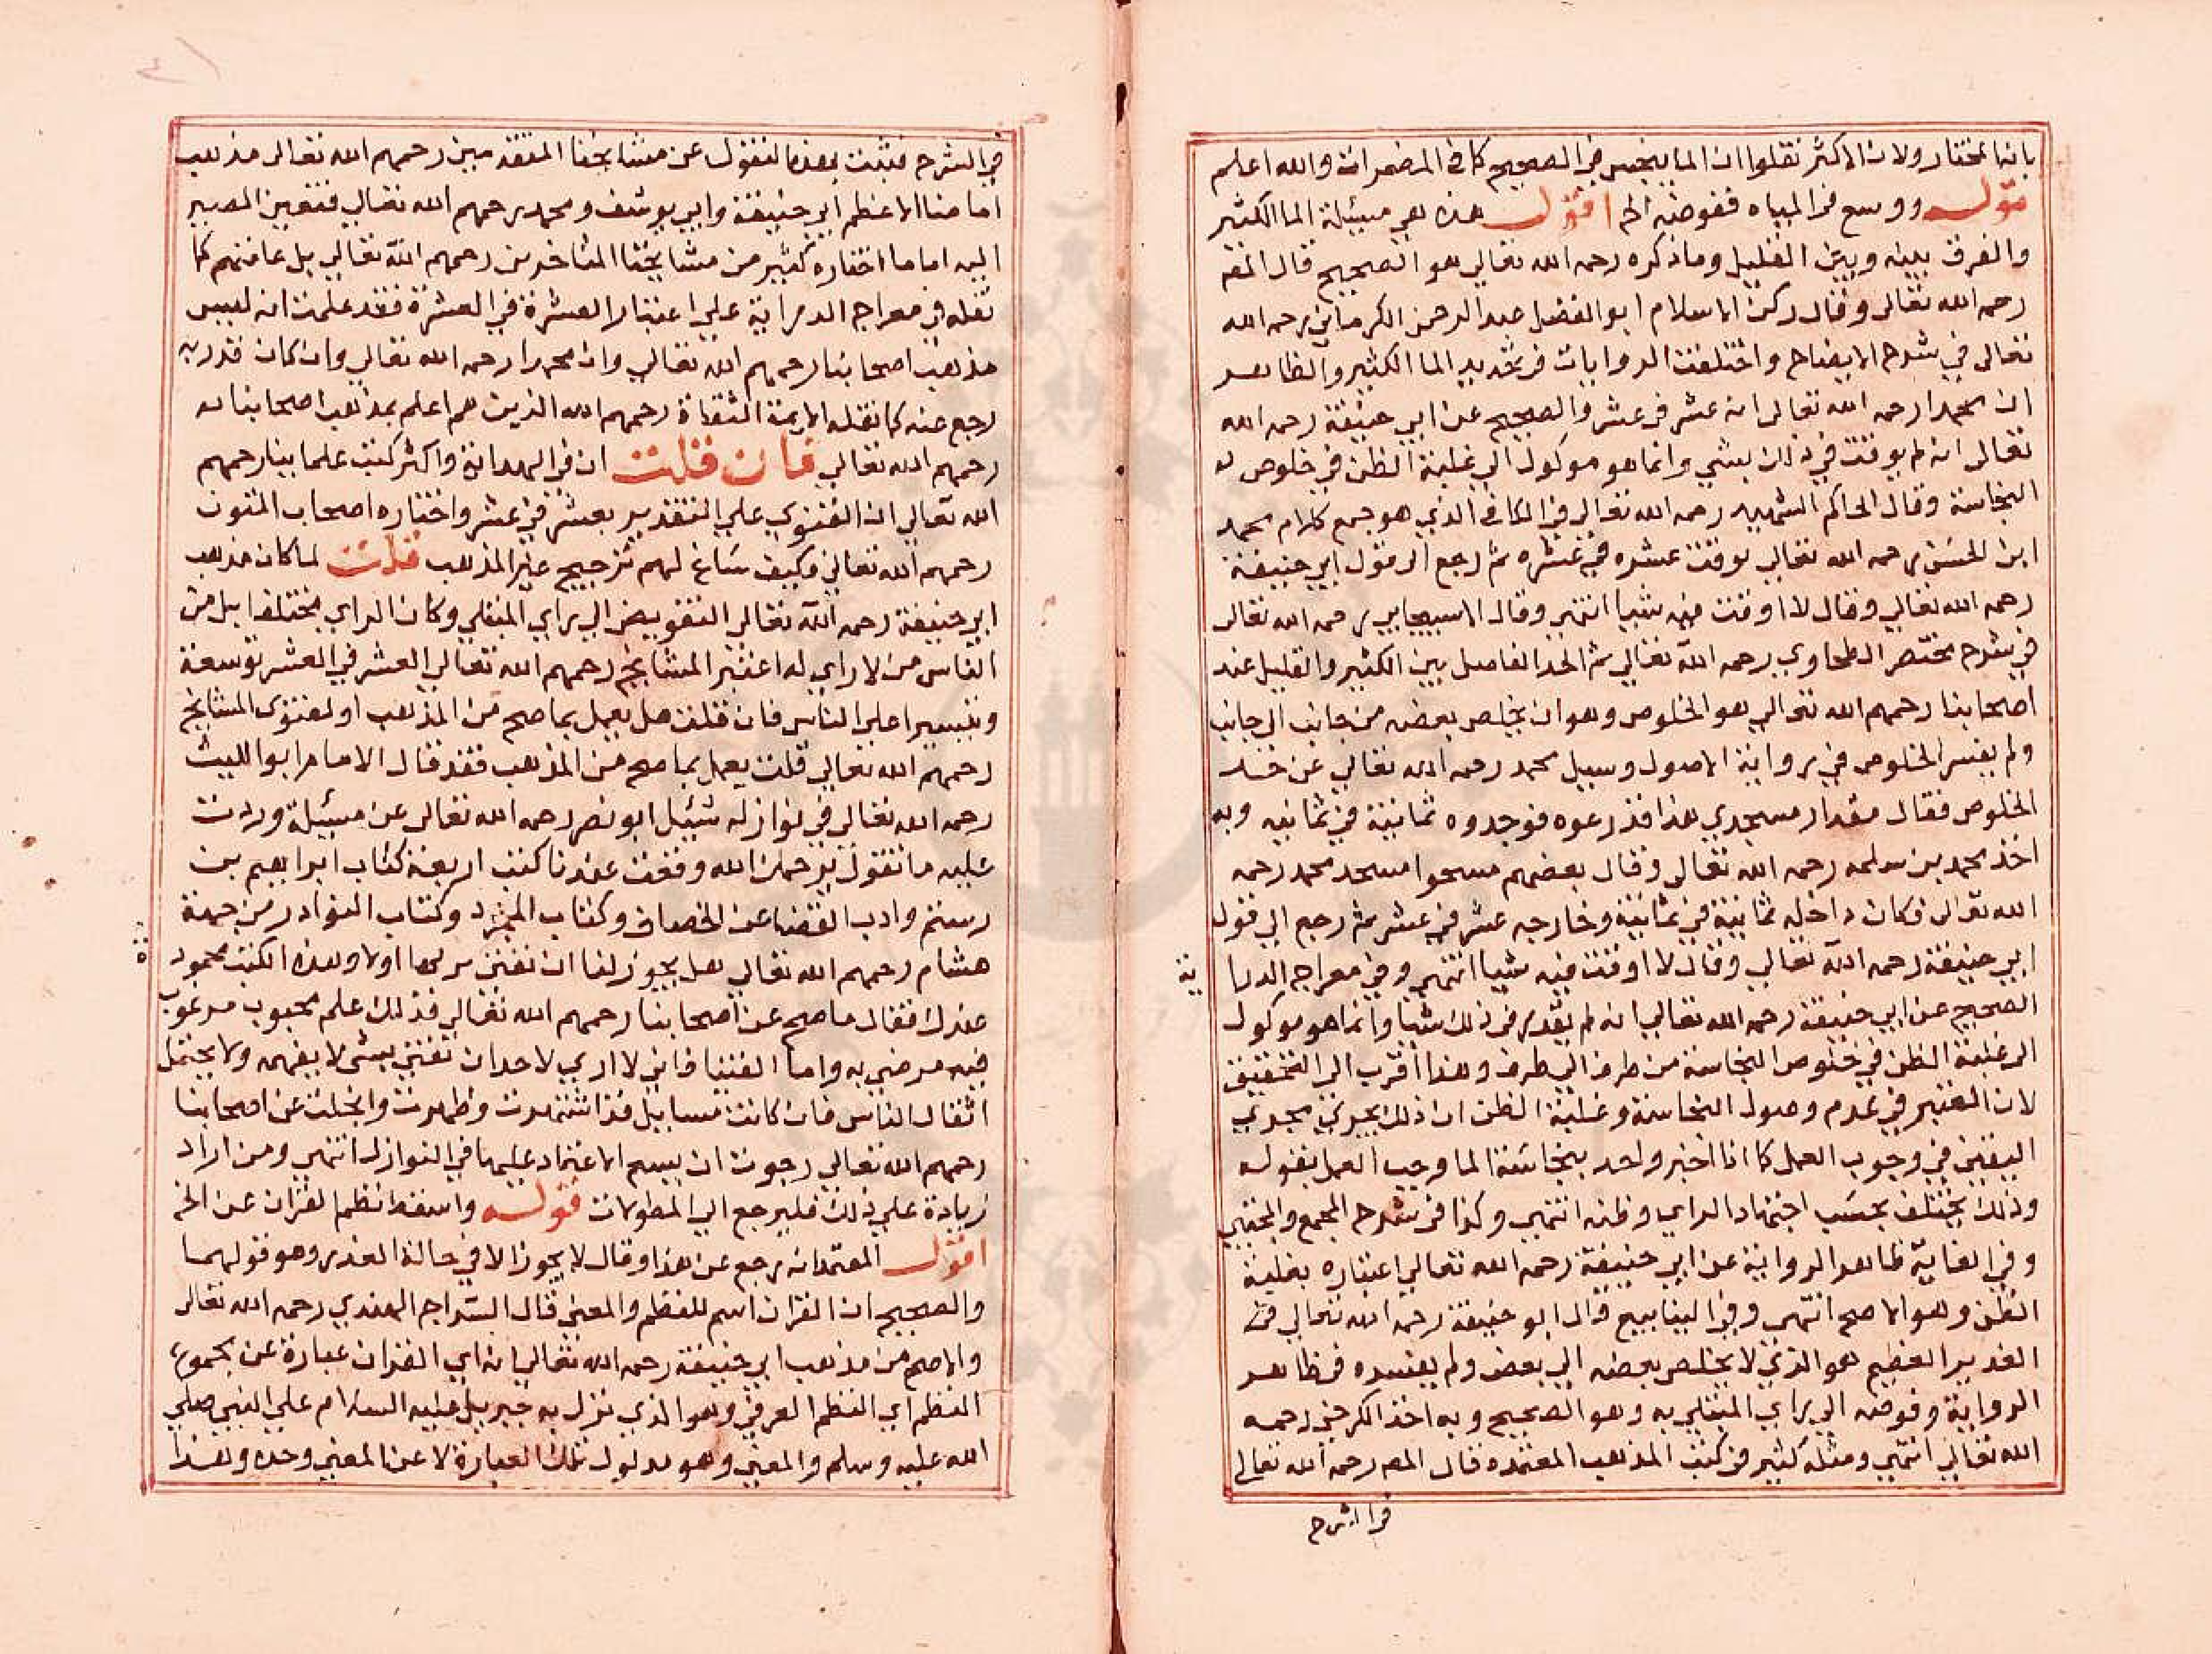 بانها المختار ولان الاكثر نقلوا ان الما ينجس في الصحيح كما في المضمرات والله اعلم
قوله ووسع في المياه ففوضه الخ اقول هذه هي مسئلة الما الكثير
والفرق بينه وبين القليل وما ذكره رحمه الله تعالى هو الصحيح قال المص
رحمه الله تعالى وقال ركن الاسلام ابو الفضل عبد الرحمن الكرماني رحمه الله
تعالى في شرح الايضاح واختلفت الروايات في تحديد الما الكثير والظاهر
ان محمدا رحمه الله تعالى انه عشر في عشر والصحيح عن ابي حنيفة رحمه الله
تعالى انه لم يوقت في ذلك بشي وانما هو موكول الى غلبة الظن في خلوص
النجاسة وقال الحاكم الشهيد رحمه الله تعالى في الكافي الذي هو جمع كلام محمد
ابن الحسن رحمه الله تعالى يوقت عشره في عشره ثم رجع الى قول ابي حنيفة
رحمه الله تعالى وقال لا اوقت فيه شيا انتهى وقال الاسبيجابي رحمه الله تعالى
في شرح مختصر الطحاوي رحمه الله تعالى ثم الحد الفاصل بين الكثير والقليل عند
اصحابنا رحمهم الله تعالى هو الخلوص وهو ان يخلص بعضه من جانب الى جانب
ولم يفسر الخلوص في رواية الاصول وسيل محمد رحمه الله تعالى عن حد
الخلوص فقال مقدار مسجدي هذا فذرعوه فوجدوه ثمانية في ثمانيه وبه
اخذ محمد بن سلمه رحمه الله تعالى وقال بعضهم مسحوا مسجد محمد رحمه
الله تعالى فكان داخله ثمانية في ثمانية وخارجه عشر في عشر ثم رجع الى قول
ابي حنيفة رحمه الله تعالى وقال لا اوقت فيه شيا انتهى وفي معراج الدرا ية
الصحيح عن ابي حنيفة رحمه الله تعالى انه لم يقدر في ذلك شيا وانما هو موكول
الى غلبة الظن في خلوص النجاسة من طرف الى طرف وهذا اقرب الى التحقيق
لان المعتبر في عدم وصول النجاسة وغلبة الظن ان ذلك يجري مجرى
اليقين في وجوب العمل كما اذا اخبر واحد بنجاسة الما وجب العمل بقوله
وذلك يختلف بحسب اجتهاد الراي وظنه انتهى وكذا في شرح المجمع والمجتبى
وفي الغاية ظاهر الرواية عن ابي حنيفة رحمه الله تعالى اعتباره بغلبة
الظن وهو الاصح انتهى وفي الينابيع قال ابو حنيفة رحمه الله تعالى في
الغدير العظيم هو الذي لا يخلص بعضه الى بعض ولم يفسره في ظاهر
الرواية وفوضه الى راي المبتلى به وهو الصحيح وبه اخذ الكرخي رحمه
الله تعالى انتهى ومثله كثير في كتب المذهب المعتمده قال المص رحمه الله تعالى
في الشرح
في الشرح فثبت بهذه النقول عن مشايخنا المتقدمين رحمهم الله تعالى مذهب
امامنا الاعظم ابي حنيفة وابي يوسف ومحمد رحمهم الله تعالى فتعين المصير
اليه اما ما اختاره كثير من مشايخنا المتاخرين رحمهم الله تعالى بل عامتهم كما
نقله في معراج الدراية على اعتبار العشرة في العشرة فقد علمت انه ليس
مذهب اصحابنا رحمهم الله تعالى وان محمدا رحمه الله تعالى وان كان قدر به
رجع عنه كما نقله الايمة الثقاة رحمهم الله الذين هم اعلم بمذهب اصحابنا
رحمهم الله تعالى فان قلت ان في الهداية واكثر كتب علماينا رحمهم
الله تعالى ان الفتوى على التقدير بعشر في عشر واختاره اصحاب المتون
رحمهم الله تعالى وكيف ساغ لهم ترجيح غير المذهب قلت لما كان مذهب
ابي حنيفة رحمه الله تعالى التفويض الى راي المبتلى وكان الراي يختلف بل من
الناس من لا راي له اعتبر المشايخ رحمهم الله تعالى العشر في العشر توسعة
وتيسيرا على الناس فان قلت هل يعمل بما صح من المذهب او بفتوى المشايخ
رحمهم الله تعالى قلت يعمل بما صح من المذهب فقد قال الامام ابو الليث
رحمه الله تعالى في نوازله سيئل ابو نصر رحمه الله تعالى عن مسئلة وردت
عليه ما تقول يرحمك الله وقعت عندنا كتب اربعة كتاب ابراهيم بن
رستم وادب القضا عن الخصاف وكتاب المجرد وكتاب النوادر من جهة
هشام رحمهم الله تعالى هل يجوز لنا ان نفتي بها اولا وهذه الكتب محمود ة
عندك فقال ما صح عن اصحابنا رحمهم الله تعالى فذلك علم محبوب مرغوب
فيه مرضي به واما الفتيا فاني لا ارى لاحد ان يفتي بشي لا يفهمه ولا يحتمل
اثقال الناس فان كانت مسايل قد اشتهرت وظهرت وانجلت عن اصحابنا
رحمهم الله تعالى رجوت ان يسع الاعتماد عليها في النوازل انتهى ومن اراد
زيادة على ذلك فليرجع الى المطولات قوله واسقط نظم القران عن الخ
اقول المعتمد انه رجع عن هذا وقال لا يجوز الا في حالة العذر وهو قولهما
والصحيح ان القران اسم للنظم والمعنى قال السراج الهندي رحمه الله تعالى
والاصح من مذهب ابي حنيفة رحمه الله تعالى انه اي القران عبارة عن مجموع
النظم اي النظم العربي وهو الذي نزل به جبريل عليه السلام على النبي صلى
الله عليه وسلم والمعنى وهو مدلول تلك العبارة لا عن المعنى وحده وهذا